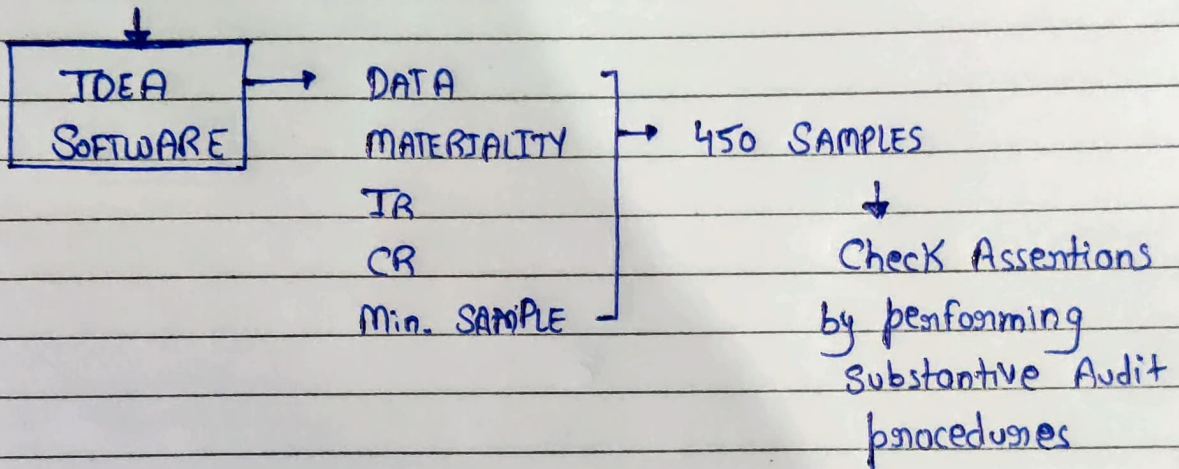 IDEA
SOFTWARE
DATA
MATERIALITY
IR
CR
Min. SAMPLE
450 SAMPLES
Check Assertions
by performing
Substantive Audit
procedures